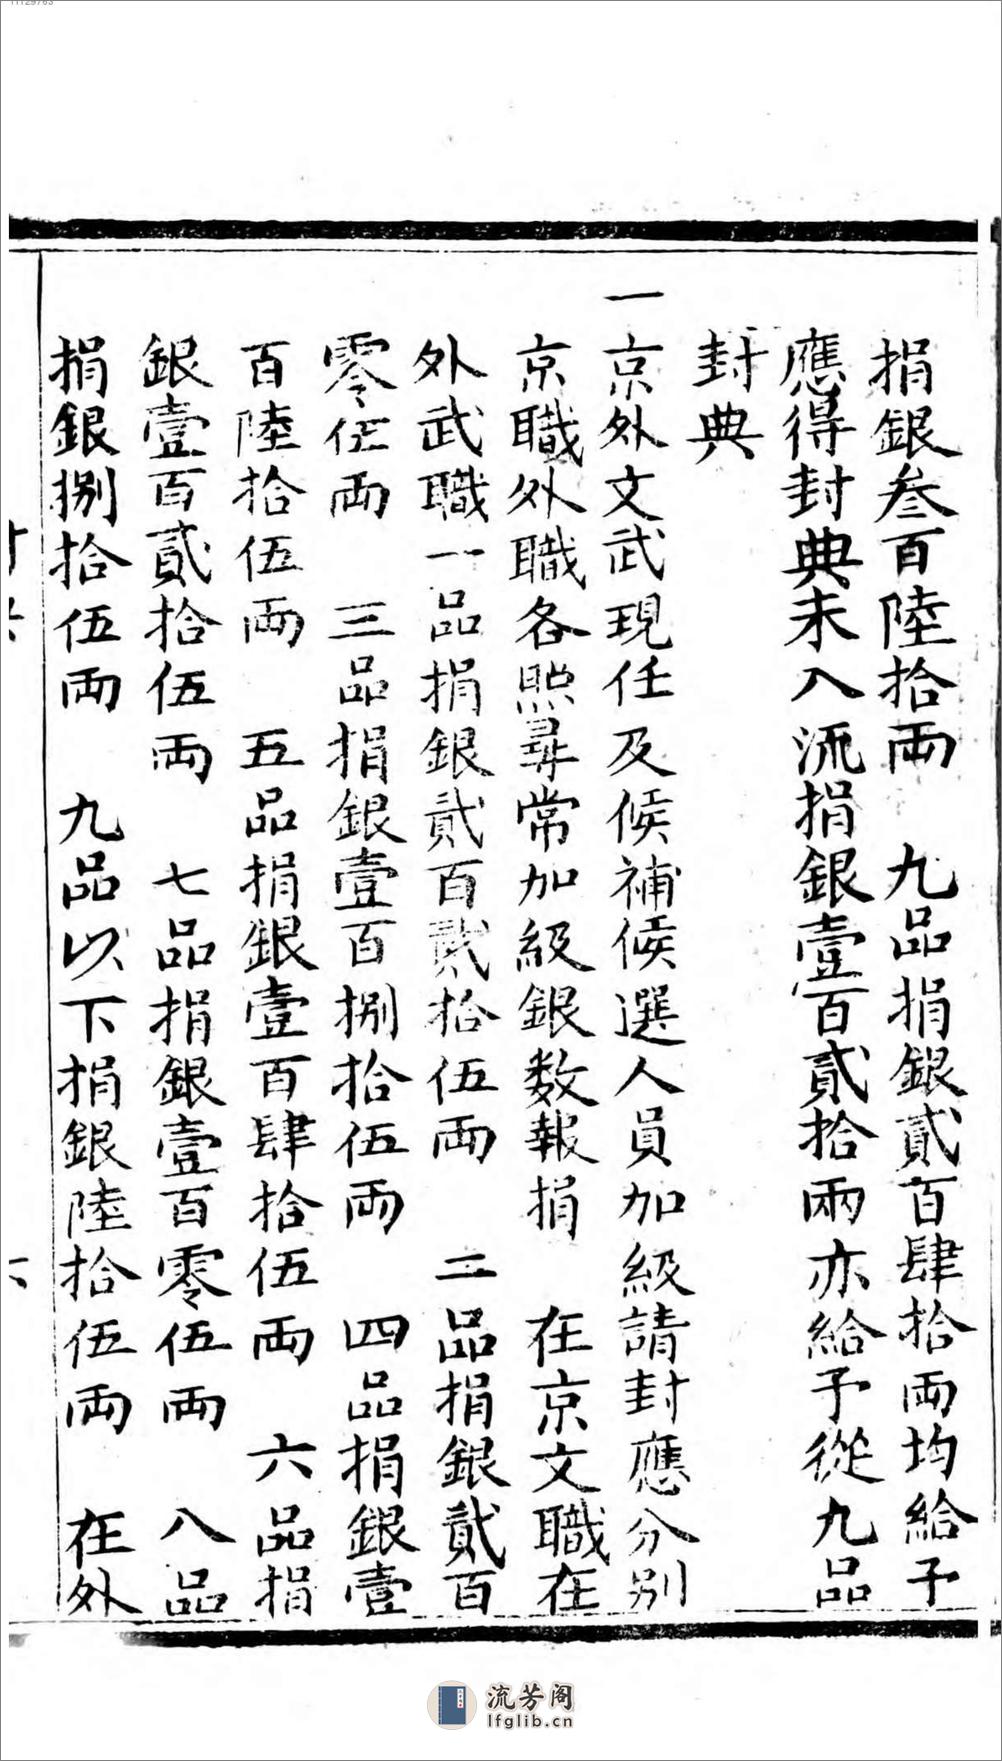 捐銀叄百陸拾両　九品捐銀貳百肆拾両均給予
應得封典未入流捐銀壹百貳拾兩亦給予從九品
封典
一京外文武現任及候補候選人員加級請封應分别
京職外職各照尋常加級銀数報捐　在京文職在
外武職一品捐銀貳百貳拾伍両　二品捐銀貳百
零伍両　三品捐銀壹百捌拾伍両　四品捐銀壹
百陸拾伍両　五品捐銀壹百肆拾伍両　六品捐
銀壹百貳拾伍両　七品捐銀壹百零伍両　八品
捐銀捌拾伍両　九品以下捐銀陸拾伍両　在外
流芳阁
lfglib.cn